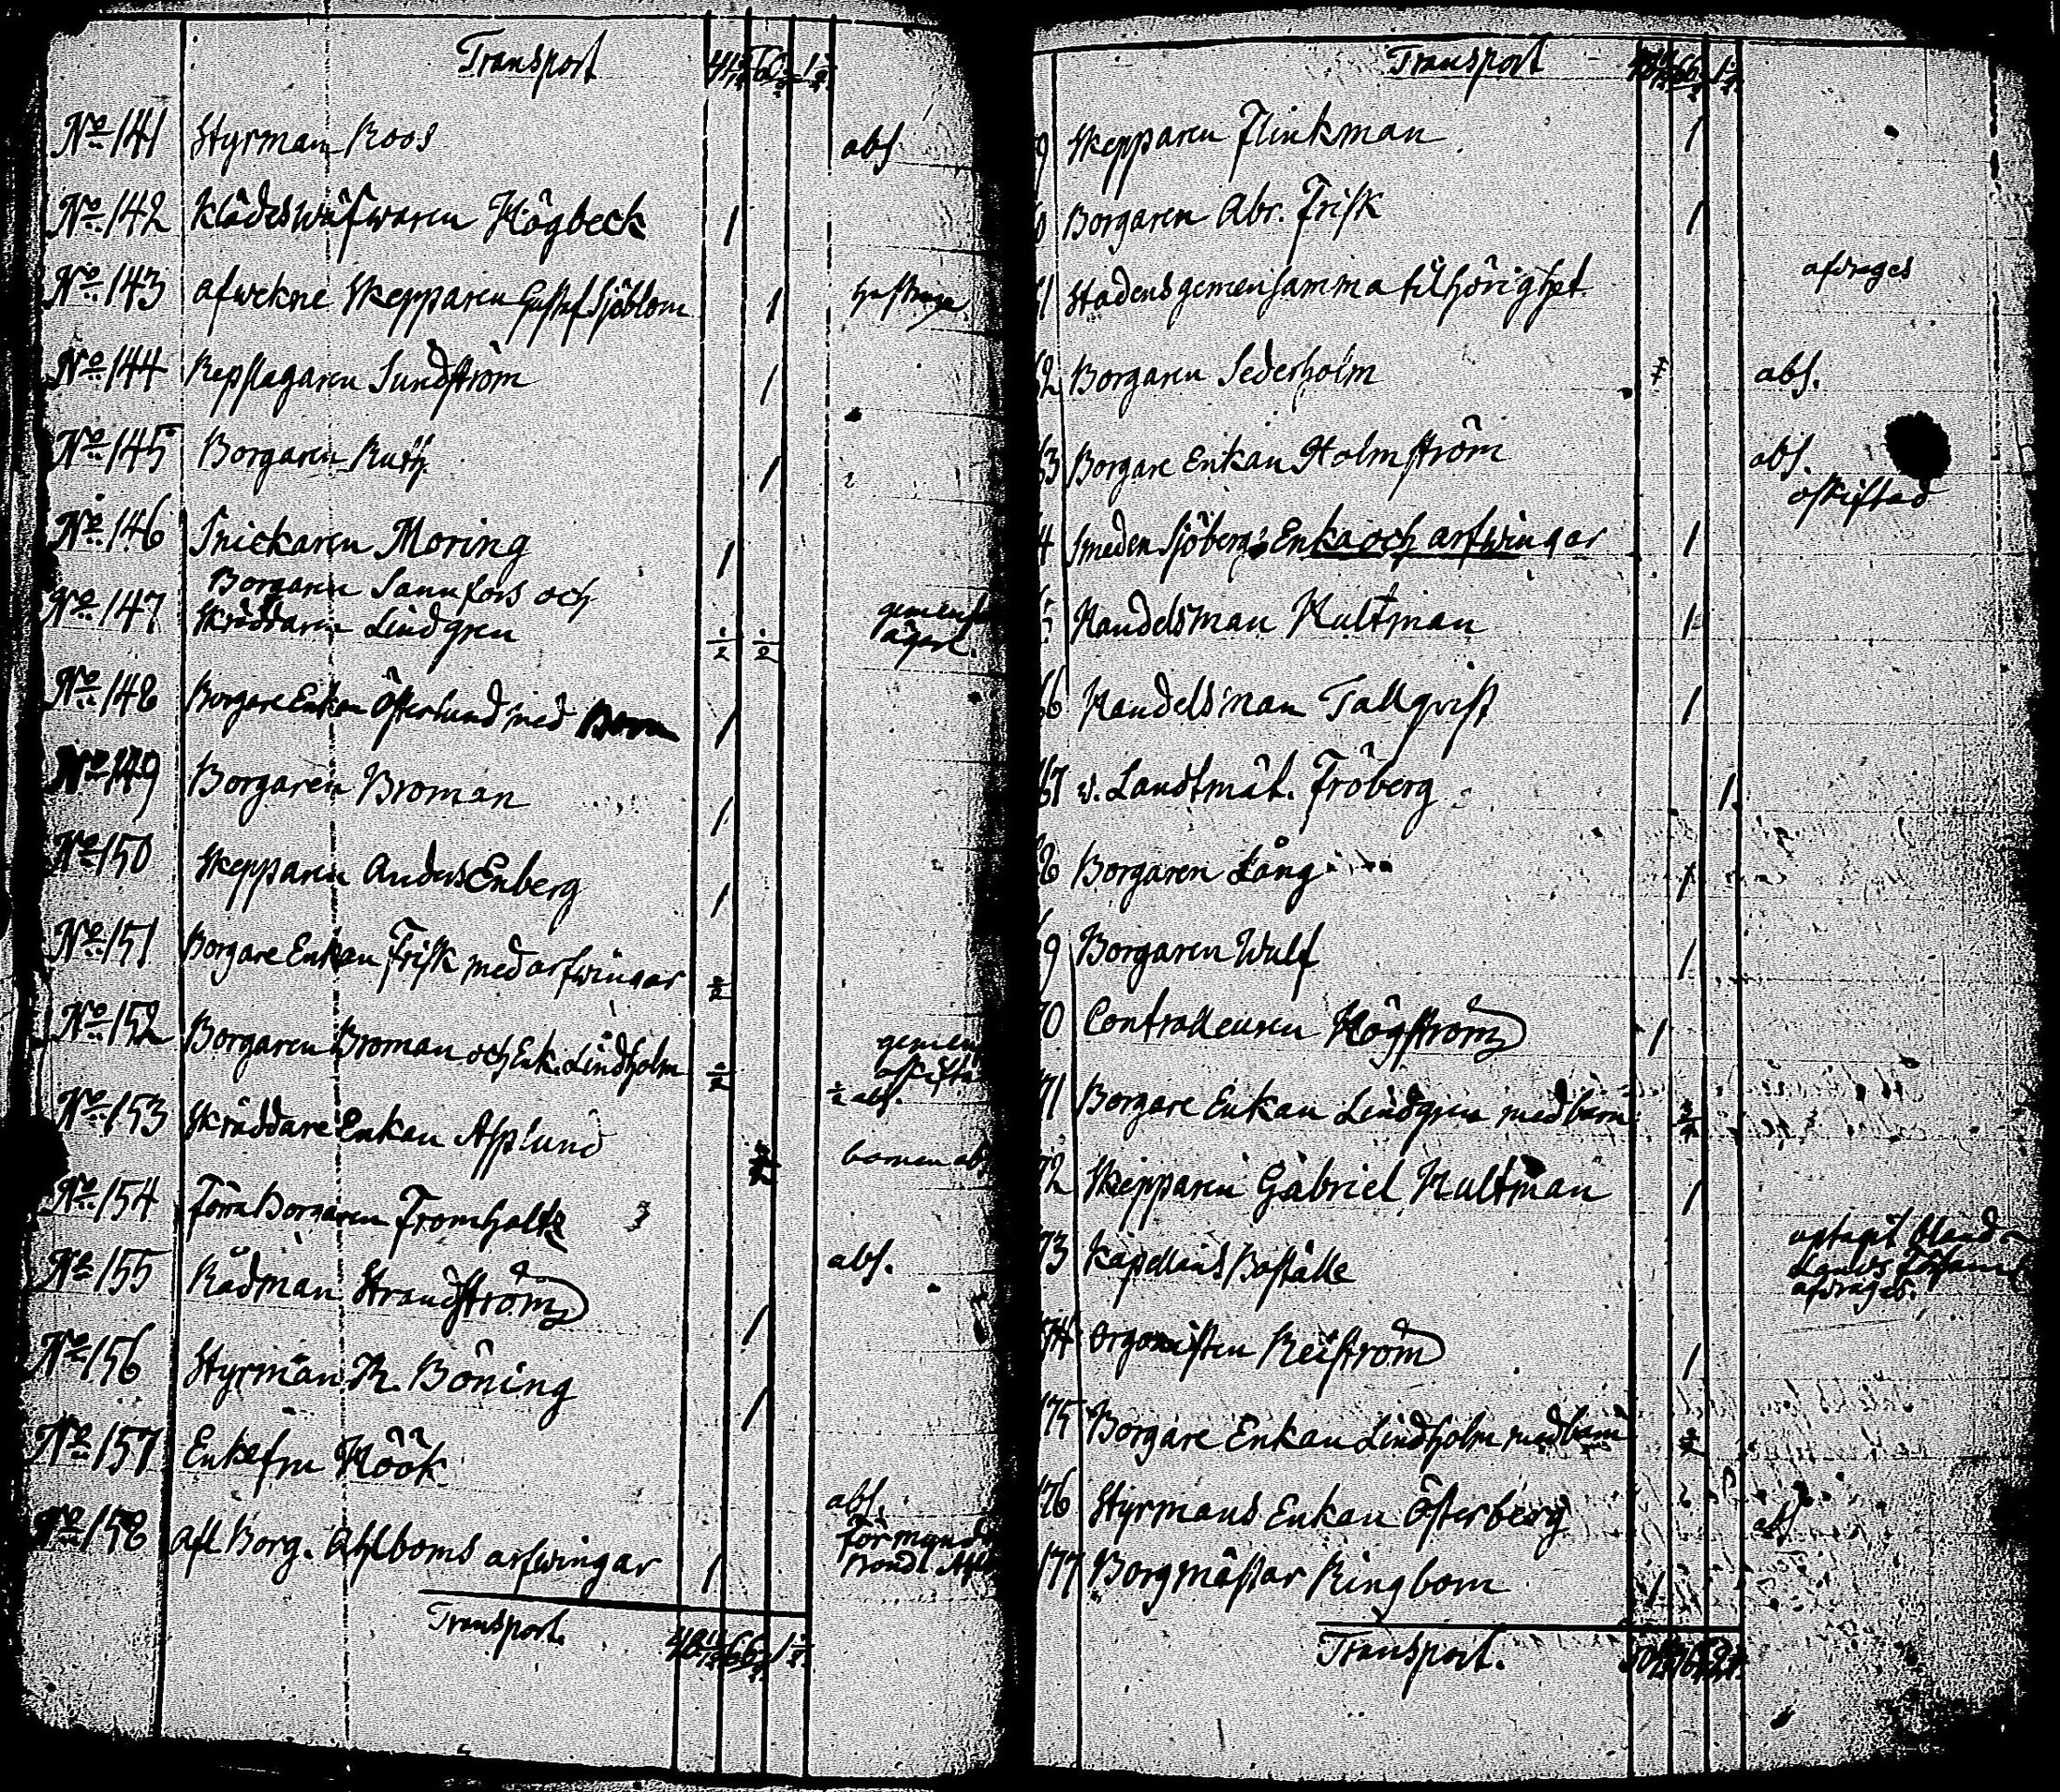 Transport
No 141 Styrman Roos abs.
No 142 Klädeswäfwaren Högbeck 1
No 143 afwekne Skepparen Gustaf Sjöblom 1
No 144 Repslagaren Sundström 1
No 145 Borgaren 1
No 146 Snickaren Moring 1
Borgaren Sannfors och
No 147 Skräddaren Lindgren 1/2 1/2
No 148 Borgare Enkan Österlund med Barn 1
No 149 Borgaren Broman 1
No 150 Skepparen Anders Enberg 1
No 151 Borgare Enkan Frisk med arfwingar
No 152 Borgaren Broman och Enk. Lindholm
1/2 abs.
No 153 Skräddare Enkan Asplund
No 154 Förra Borgaren Fromholtz abs.
No 155 Rådman Strandström 1
No 156 Styrman R. Böning 1
No 157 Enkefru Höök abs.
No 158 afl Borg. Ahlboms arfwingar 1
Transport.
Transport
9 Skepparen Flinkman 1
Borgaren Abr. Frisk 1
1 Stadens gemensamma tilhörighet afdrages
2 Borgaren Sederholm abs.
3 Borgare Enkan Holmström abs.
oskiftad
4 Smeden Sjöbergs Enka och arfwingar 1
Handelsman Hultman 1
66 Handelsman Tallqvist 1
67 v. Landtmät. Fröberg 1
8 Borgaren Lång 1
9 Borgaren Wulf 1
70 Contralleuren Högström 1
71 Borgare Enkan Lindgren med barn
72 Skepparen Gabriel Hultman 1
73 Kapellans Boställe
afdrages.
74 Organisten Reiström 1
175 Borgare Enkan Lindholm med barn
176 Styrmans Enkan Österberg abs.
177 Borgmästar Ringbom 1
Transport.